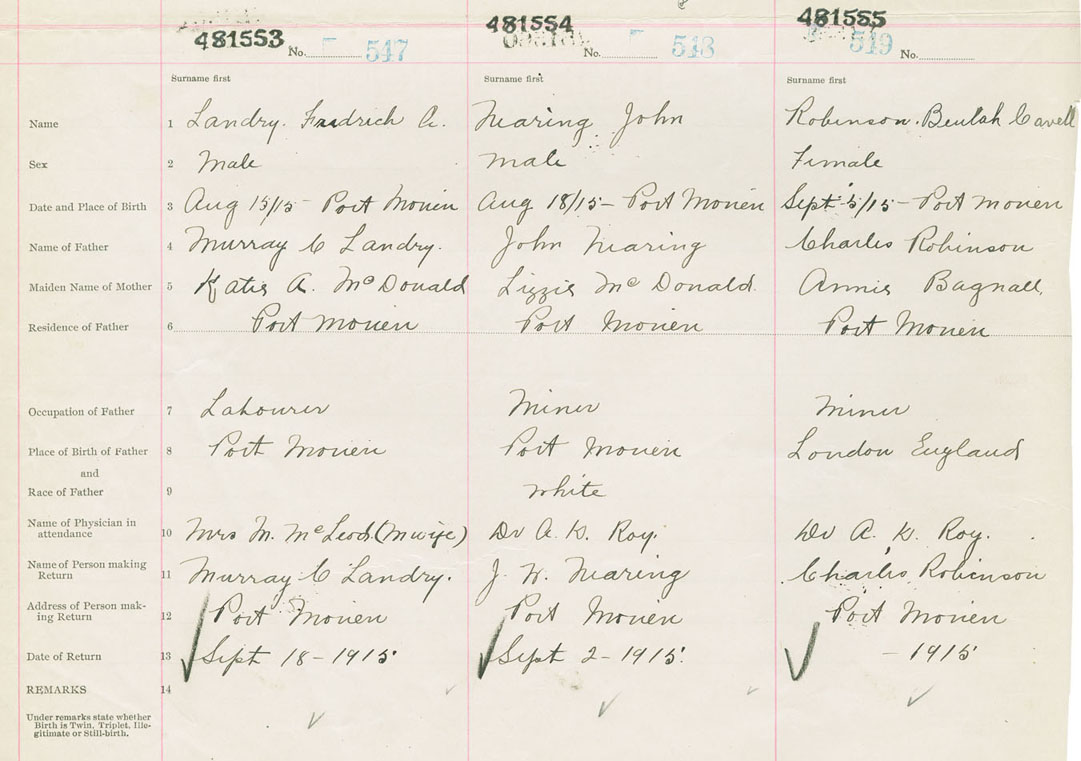 481553 481554 481555
No. 547 No. 548 549 No.
Surname first Surname first Surname first
Name 1 Landry. Fredrich A. Nearing John Robinson. Beulah Cavell
Sex 2 Male male Female
Date and Place of Birth 3 Aug 15/15 - Port Morien Aug 18/15 - Port Morien Sept 5/15 - Port Morien
Name of Father 4 Murray C Landry. John Nearing Charles Robinson
Maiden Name of Mother 5 Katie A. McDonald Lizzie McDonald. Annie Bagnall,
Residence of Father 6 Port Morien Port Morien Port Morien
Occupation of Father 7 Labourer Miner Miner
Place of Birth of Father 8 Port Morien Port Morien London England
and
Race of Father 9 White
Name of Physician in
attendance 10 Mrs M. McLeod (Mwife) Dr A. K. Roy. Dr A. K. Roy.
Name of Person making
Return 11 Murray C Landry. J. W. Nearing Charles Robinson
Address of Person mak-
ing Return 12 Port Morien Port Morien Port Morien
Date of Return 13 Sept 18 - 1915 Sept 2 - 1915. - 1915
REMARKS 14
Under remarks state whether
Birth is Twin, Triplet, Ille-
gitimate or Still-birth.